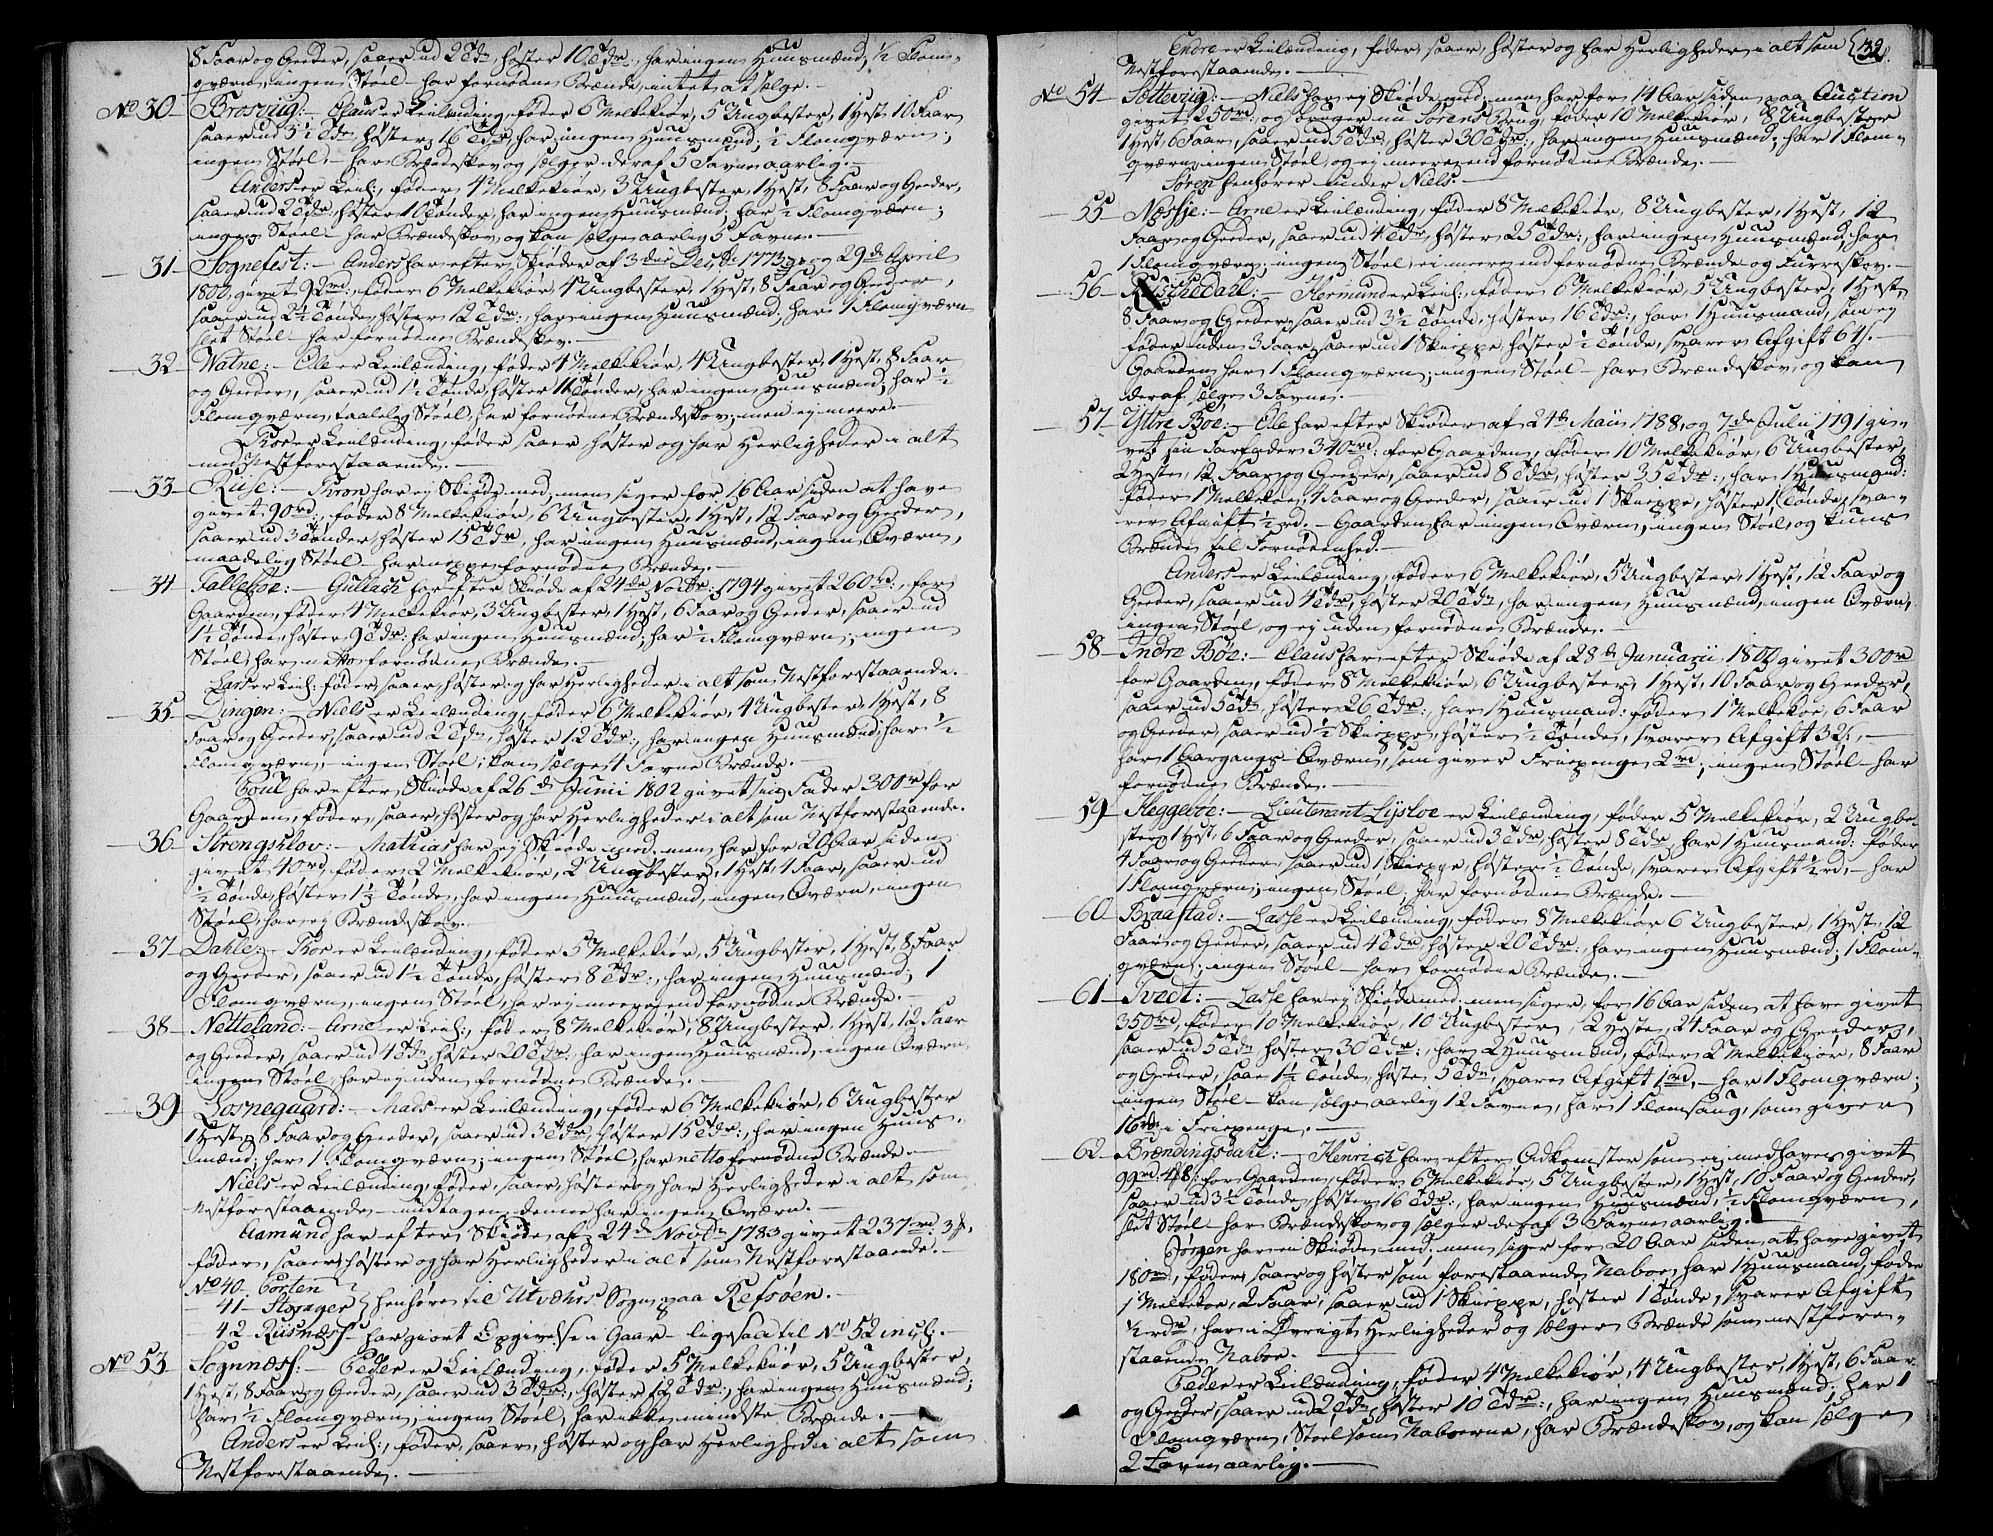 8 Faar og Geeder, saaer ud 2 Tdr, høster 10 Tdr:, har ingen Huusmænd, ½ Flom-
qværn, ingen Støel – har fornødne Brænde, intet at sælge. –
No 30 – Brosvug: – Claus er Leilænding, føder 6 Melkekiør, 5 Ungbester, 1 Hest, 10 Faar
saaer ud 3½ Tdr, høster 16 Tdr, har ingen Huusmænd; ½ Flomqværn;
ingen Støel – har Brændeskov og sælger deraf 5 Favne aarlig. –
Anders er Leil:, føder 4 Melkekiør, 3 Ungbester, 1 Hest, 8 Faar og Geeder,
saaer ud 2 Tdr, høster 10 Tønder, har ingen Huusmænd; har ½ Flomqværn;
ingen Støel – har Brændeskov, og kan sælge aarlig 5 Favne. –
– 31 – Sognefest: – Anders har efter Skiøder af 3die Decbr 1773 og 29de April
1802, givet 92rd:, føder 6 Melkekiør, 4 Ungbester, 1 Hest, 8 Faar og Geeder,
saaer ud 2½ Tønde, høster 12 Tdr:, har ingen Huusmænd, har 1 Flomqværn
slet Støel – har fornødne Brændeskov. –
– 32 – Watne: – Ole er Leilænding, føder 4 Melkekiør, 4 Ungbester, 1 Hest, 8 Faar
og Geeder, saaer ud 1½ Tønde, høster 11 Tønder, har ingen Huusmænd, har ½
Flomqværn, taalelig Støel, har fornødne Brændeskov; men ej meere. –
Thor er Leilænding, føder, saaer, høster og har Herligheder i alt
med Nestforestaaende. –
– 33 – Riise: – Thron har ej Skiøde med, men siger for 16 Aar siden at have
givet 90rd:, føder 8 Melkekiør, 6 Ungbester, 1 Hest, 12 Faar og Geeder,
saaer ud 3 Tønder, høster 15 Tdr, har ingen Huusmænd, ingen Qværn,
maadelig Støel – har neppe fornødne Brænde. –
– 34 – Tallebøe: – Gullach har efter Skiøde af 24de Novbr: 1794 givet 260rd:, for
Gaarden, føder 4 Melkekiør, 3 Ungbester, 1 Hest, 6 Faar og Geeder, saaer ud
1½ Tønde, høster 9 Tdr: har ingen Huusmænd; har ½ Flomqværn; ingen
Støel, har netto fornødne Brænde. –
Lars er Leil: føder, saaer, høster og har Herligheder i alt som Nestforestaaende.
– 35 – Dingen: – Niels er Leilænding, føder 6 Melkekiør, 4 Ungbester, 1 Hest, 8
Faar og Geeder, saaer ud 2 Tdr, høster 12 Tdr:, har ingen Huusmænd, har ½
Flomqværn, – ingen Støel; kan sælge 1 Favne Brænde. –
Poul har efter Skiøde af 26de Junii 1802 givet sin Fader 300rd for
Gaarden, føder, saaer, høster og har Herligheder i alt som Nestforestaaende.
– 36 – Strengsklov: – Mathias har ej Skiøde med, men har for 20 Aar siden
givet 40rd, føder 2 Melkekiør, 2 Ungbester, 1 Hest, 4 Faar, saaer ud
½ Tønde, høster 1½ Tønde, har ingen Huusmænd, ingen Qværn, ingen
Støel, har ej Brændeskov. –
– 37 – Dahle: – Thor er Leilænding, føder 5 Melkekiør, 5 Ungbester, 1 Hest, 8 Faar
og Geeder, saaer ud 1½ Tønde, høster 8 Tdr:, har ingen Huusmænd; 1
Flomqværn, ingen Støel, har ej meere end fornødne Brænde. –
– 38 – Netteland: – Arne er Leil:, føder 8 Melkekiør, 8 Ungbester, 1 Hest, 12 Faar
og Geeder, saaer ud 4 Tdr, høster 20 Tdr:, har ingen Huusmænd, ingen Qværn,
ingen Støel, har ej uden fornødne Brænde. –
– 39 – Losnegaard: – Mads er Leilænding, føder 6 Melkekiør, 6 Ungbester
1 Hest, 8 Faar og Geeder, saaer ud 3 Tdr, høster 15 Tdr:, har ingen Huus-
mænd; har 1 Flomqværn; ingen Støel, har netto fornødne Brænde. –
Niels er Leilænding, føder, saaer, høster og har Herligheder i alt som
Nestforestaaende – undtagen, denne har ingen Qværn. –
Aamund har efter Skiøde af 24de Novbr 1783 givet 237rd: 3f,
føder, saaer, høster og har Herligheder i alt som Nestforestaaende. –
No 40. Porten
– 41 – Stavager } henhøre til Utvæhrs Sogn paa Refsøen. –
– 42 – Riisnæss – har giort Opgivelse i Gaar – ligesaa til No 52 incl: –
No 53 – Sognnæss: – Peder er Leilænding, føder 5 Melkekiør, 5 Ungbester,
1 Hest, 8 Faar og Geeder, saaer ud 3 Tdr:, høster 12 Tdr:, har ingen Huusmænd;
har ½ Flomqværn; ingen Støel, har ikke mindste Brænde. –
Anders er Leil:, føder, saaer, høster og har Herlighed i alt som
Nestforestaaende. –
Endre er Leilænding, føder, saaer, høster og har Herligheder i alt som
132.
Nestforestaaende. –
No 54 – Sættevug: – Niels har ej Skiøde med, men har for 14 Aar siden paa Auction
givet 250rd, og bruger nu Sørens Brug, føder 10 Melkekiør, 8 Ungbester
1 Hest, 6 Faar, saaer ud 5 Tdr, høster 30 Tdr:, har ingen Huusmænd; har 1 Flom-
qværn, ingen Støel, og ej meere end fornødne Brænde. –
Søren henhører under Niels. –
– 55 – Næssje: – Arne er Leilænding, føder 8 Melkekiør, 8 Ungbester, 1 Hest, 12
Faar og Geeder, saaer ud 4 Tdr, høster 25 Tdr:, har ingen Huusmænd, har
1 Flomqværn; ingen Støel, ej meere end fornødne Brænde og Furreskov. –
– 56 – Risledahl: – Hermund er Leil:, føder 6 Melkekiør, 5 Ungbester, 1 Hest,
8 Faar og Geeder, saaer ud 3½ Tønde, høster 16 Tdr:, har 1 Huusmand, som ej
føder uden 3 Faar, saaer ud 1 Skieppe, høster ½ Tønde, svarer Afgift 64s. –
Gaarden har 1 Flomqværn; ingen Støel – har Brændeskov, og kan
deraf sælge 3 Favne. –
– 57 – Yttre Bøe: – Ole har efter Skiøder af 24de Maii 1788, og 7de Julii 1791 gi-
vet sin Farfader 340rd: for Gaarden, føder 10 Melkekiør, 6 Ungbester,
2 Heste, 12 Faar og Geeder, saaer ud 8 Tdr, høster 35 Tdr:, har 1 Huusmand:
føder 1 Melkekoe, 4 Faar og Geeder, saaer ud 1 Skieppe, høster 1 Tønde, sva-
rer Afgift ½rd. – Gaarden har ingen Qværn; ingen Støel, og kuns
Brænde til Fornødenhed. –
Anders er Leilænding, føder 6 Melkekiør, 5 Ungbester, 1 Hest, 12 Faar og
Geeder, saaer ud 4 Tdr, høster 20 Tdr, har ingen Huusmænd, ingen Qværn,
ingen Støel, og ej uden fornødne Brænde. –
– 58 – Indre Bøe: – Claus har efter Skiøde af 28de Januarii 1802 givet 300rd
for Gaarden, føder 8 Melkekiør, 6 Ungbester, 1 Hest, 10 Faar og Geeder,
saaer ud 5 Tdr, høster 26 Tdr:, har 1 Huusmand: føder 1 Melkekoe, 6 Faar
og Geeder, saaer ud ½ Skieppe, høster ½ Tønde, svarer Afgift 32s. –
har 1 Aargangs-Qværn, som giver Friepenge 2rd; ingen Støel – har
fornødne Brænde. –
– 59 – Heggebøe: – Lieutenant Lysloe er Leilænding, føder 5 Melkekiør, 2 Ungbe-
ster, 1 Hest, 6 Faar og Geeder, saaer ud 3 Tdr, høster 8 Tdr, har 1 Huusmand: føder
4 Faar og Geeder, saaer ud 1 Skieppe, høster ½ Tønde, svarer Afgift ½rd, – har
1 Flomqværn; ingen Støel; har fornødne Brænde. –
– 60 – Braastad: – Lasse er Leilænding, føder 8 Melkekiør 6 Ungbester, 1 Hest, 12
Faar og Geeder, saaer ud 4 Tdr, høster 20 Tdr:, har ingen Huusmænd; 1 Flom-
qværn; ingen Støel – har fornødne Brænde. –
– 61 – Tvedt: – Lasse har ej Skiøde med; men siger, for 16 Aar siden at have givet
350rd, føder 10 Melkekiør, 10 Ungbester, 2 Heste, 24 Faar og Geeder,
saaer ud 5 Tdr, høster 30 Tdr:, har 2 Huusmænd, føder 2 Melkekiør, 8 Faar
og Geeder, saae 1½ Tønde, høste 5 Tdr, svare Afgift 1rd, – har 1 Flomqværn;
ingen Støel – kan sælge aarlig 12 Favne, har 1 Flomsaug, som giver
16rd: i Friepenge. –
– 62 – Brændingsdahl: – Henrich har efter Adkomster som ej medhaves givet
99rd: 48s: for Gaarden, føder 6 Melkekiør, 5 Ungbester, 1 Hest, 10 Faar og Geeder,
saaer ud 3½ Tønde, høster 16 Tdr:, har ingen Huusmænd, ½ Flomqværn,
slet Støel – har Brændeskov og sælger deraf 3 Favne aarlig. –
Jørgen har ei Skiøde med, men siger for 20 Aar siden at have givet
180rd, føder, saaer og høster som forestaaende Naboe, har 1 Huusmand, føder
1 Melkekoe, 2 Faar, saaer ud 1 Skieppe, høster 1 Tønde, svarer Afgift
½rd:, har i Øvrigt Herligheder og sælger Brænde som nestfore-
staaende Naboe. –
Peder er Leilænding, føder 4 Melkekiør, 4 Ungbester, 1 Hest, 6 Faar
og Geeder, saaer ud 2 Tdr, høster 10 Tdr:, har ingen Huusmænd; har 1
Flomqværn, Støel som Naboerne, har Brændeskov, og kan sælge
2 Favne aarlig. –